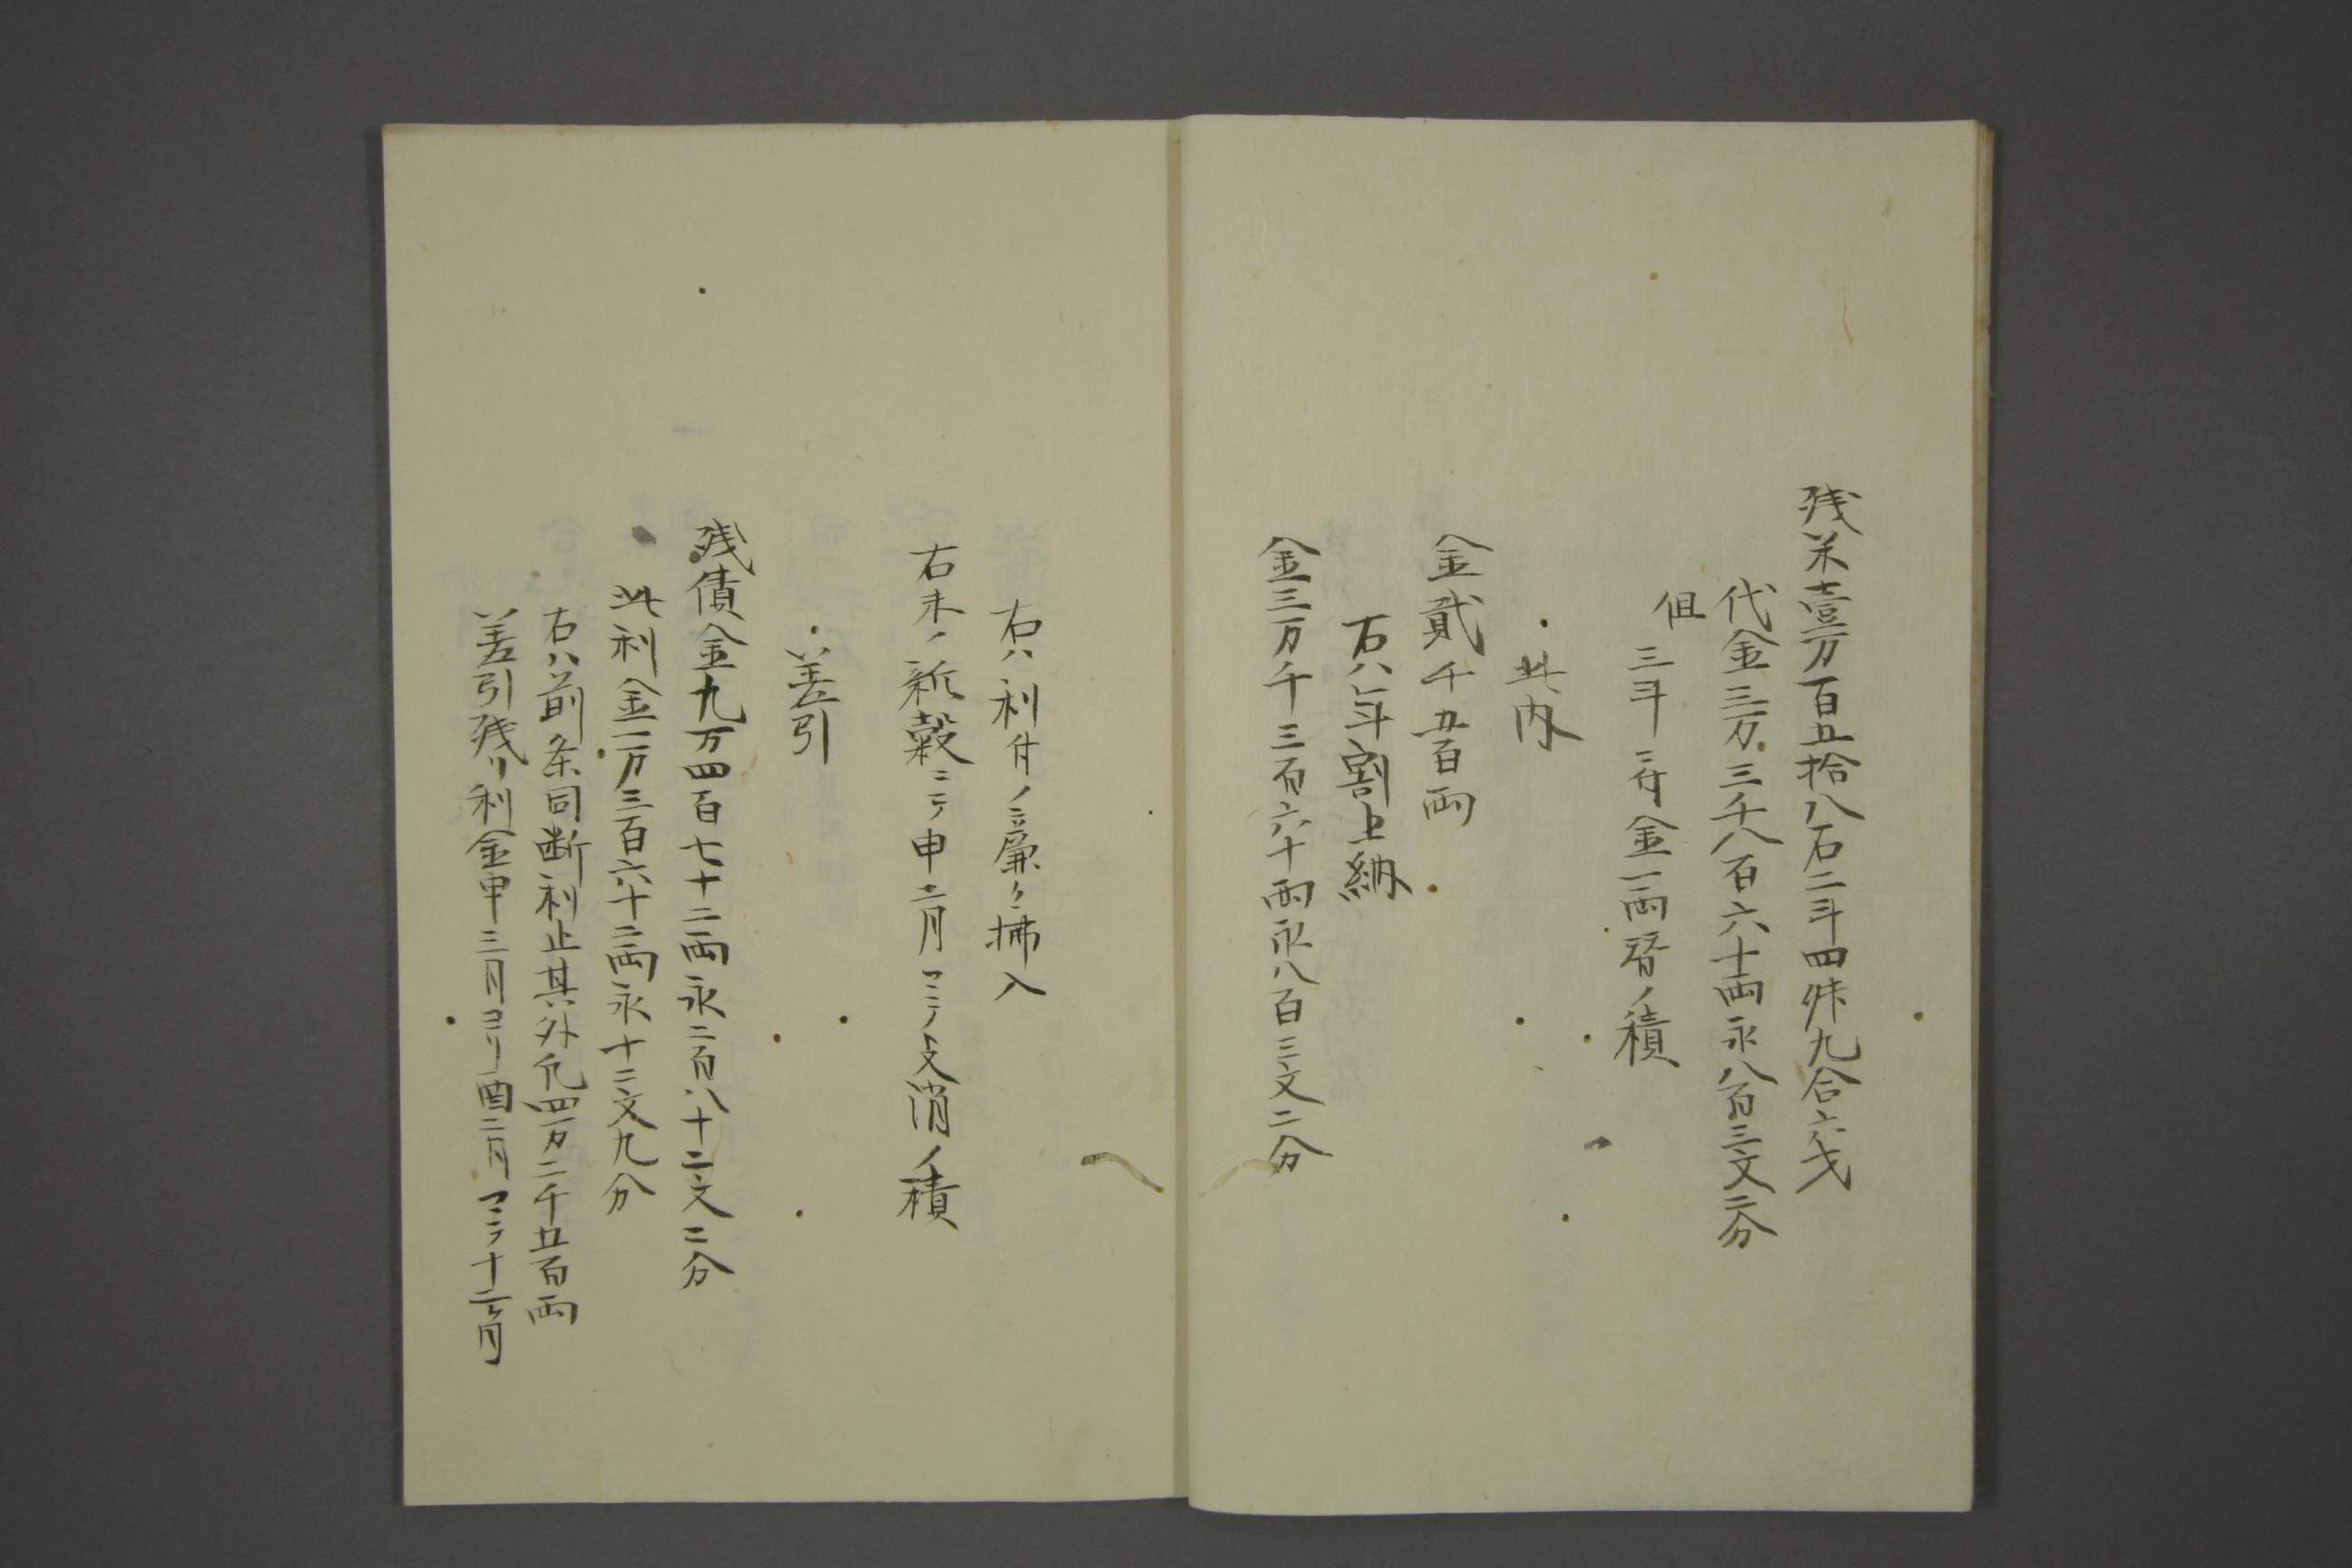 残米壹万百五拾八石二斗四舛九合六才
代金三万三千八百六十両永八百三文二分
但
三斗 替 金一両替ノ積
此内
金貳千五百両
右ハ年割上納
金三万千三百六十両永八百三文二分
右ハ利付ノ廉ヘ拂入
右未ノ新穀ニテ申二月マテノ丈消ノ積
差引
残債金九万四百七十二両永二百八十二文二分
此利金一万三百六十二両永十二文九分
右ハ前条同断利止其外凢四万二千五百両
差引残リ利金申三月ヨリ酉二月マテ十二ケ月